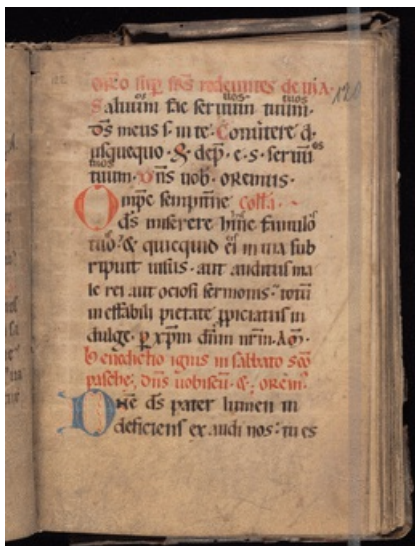 Oro sup frs redeuntes de uia. 120
os uos tuos
Saluum fac seruum tuum.
ds meus s. in te. Conuertere d.
usquequo. & dep. e. s. seruu os
tuos
tuum. Dns uob. oremus.
Omps sempitne Colla.
ds miserere huic famulo
tuo. & quicquid ei in uia sub
ripuit uisus. aut auditus ma
le rei aut ociosi sermonis. totu
ineffabili pietate ppiciatus in
dulge. p xpm dnm nrm. Am.
Benedictio ignis in sabbato sco
pasche. dns uobiscu. &. orem.
Dne ds pater lumen in
deficiens exaudi nos. tu es